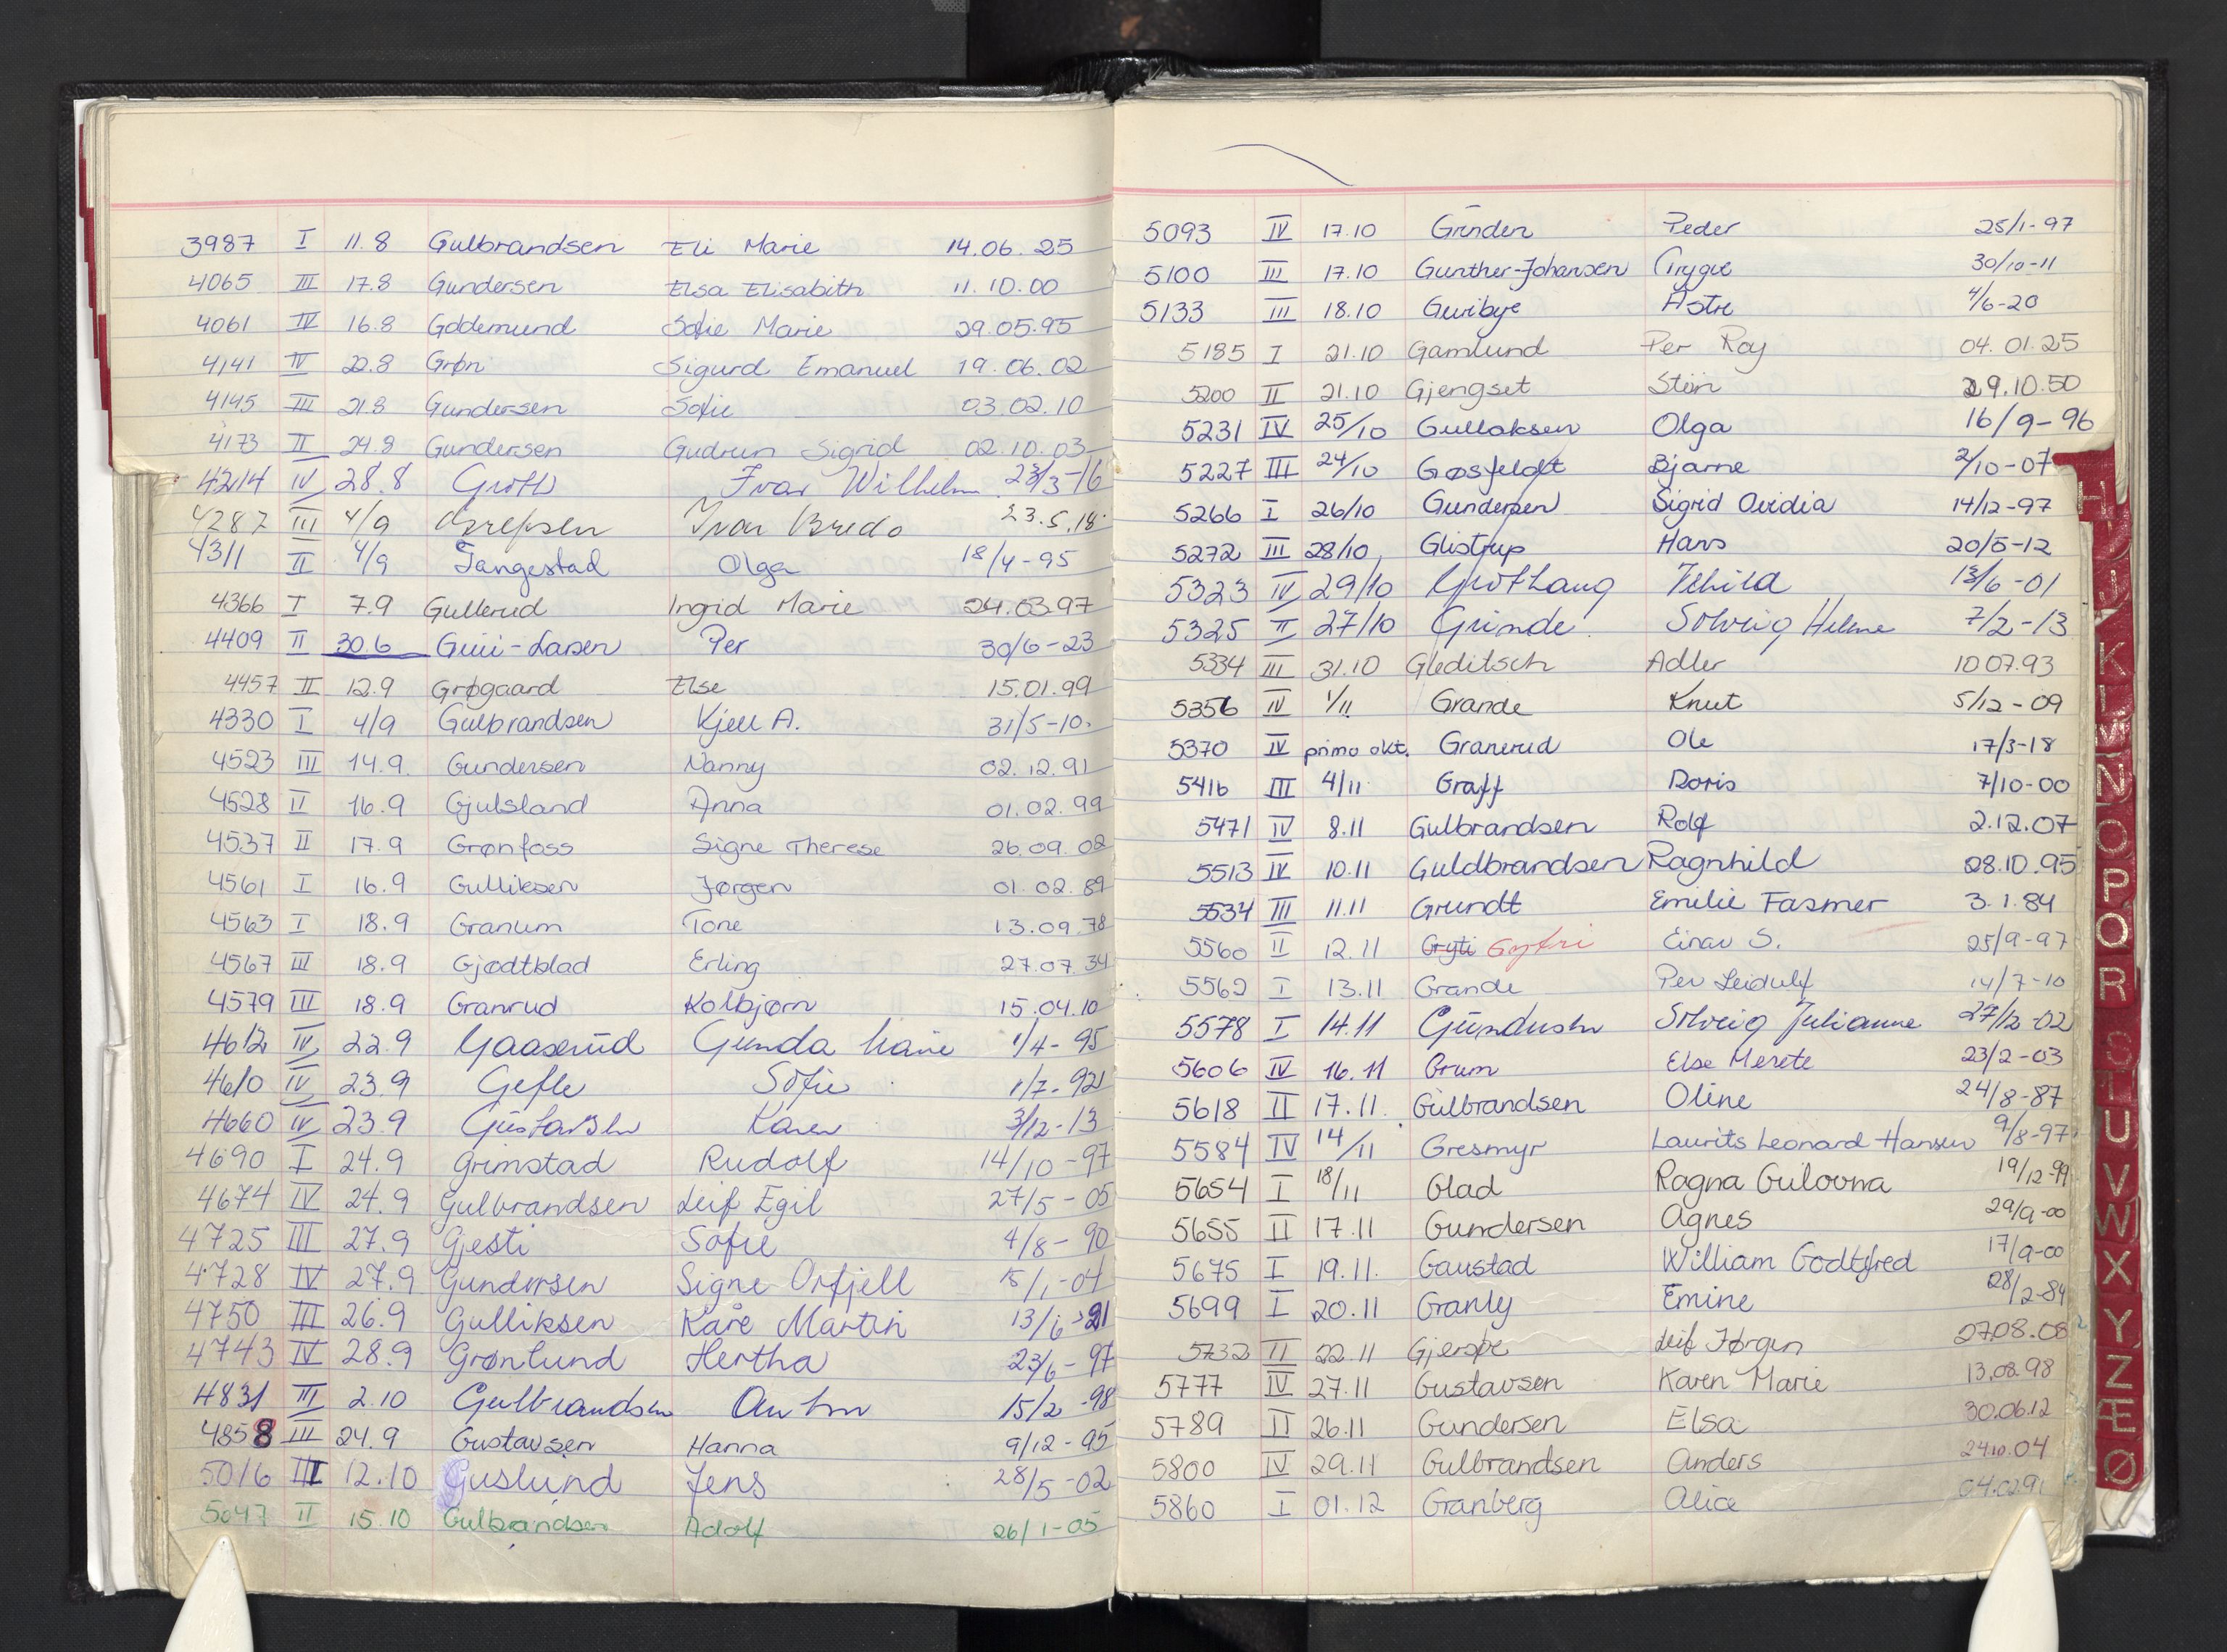 3987 I 11.8 Gulbrandsen Eli Marie 14.06.25
4065 III 17.8 Gundersen Elsa Elisabith 11.10.00
4061 IV 16.8 Goldemund Sofie Marie 29.05.95
4141 IV 22.8 Grøn Sigurd Emanuel 19.06.02
4145 III 21.8 Gundersen Sofie 03.02.10
4173 II 24.8 Gundersen Gudrun Sigrid 02.10.03
4214 IV 28.8 Groth Ivar Wilhelm 23/3-16
4287 III 4/9 Grepsen Ivar Bredo 23.5.18
4311 II 4/9 Tangestad Olga 18/4-95
4366 I 7.9 Gullerud Ingrid Marie 24.03.97
4409 II 30.6 Per 30/6-23
4457 II 12.9 Grøgaard Else 15.01.99
4330 I 4/9 Gulbrandsen Kjell A. 31/5-10
4523 III 14.9. Gundersen Nanny 02.12.91
4528 II 16.9 Gjulsland Anna 01.02.99
4537 II 17.9 Grønfoss Signe Therese 26.09.02
4561 I 16.9 Gulliksen Jørgen 01.02.89
4563 I 18.9 Granum Tone 13.09.78
4567 III 18.9 Gjødtblad Erling 27.07.34
4579 III 18.9 Granrud Kolbjørn 15.04.10
4612 IV 22.9 Gaaserud Gunda Marie 1/4-95
4610 IV 23.9 Gefle Sofie 1/7-92
4660 IV 23.9 Gustavsen Karen 3/12-13
4690 I 24.9 Grimstad Rudolf 14/10-97
4674 IV 24.9 Gulbrandsen Leif Egil 27/5-05
4725 III 27.9 Gjesti Sofie 4/8-90
4728 IV 27.9 Gundersen Signe Orfjell 15/1-04
4750 III 26.9 Gulliksen Kåre Martin 13/6-21
4743 IV 28.9 Grønlund Hertha 23/6-97
4831 III 2.10 Gulbrandsen Anton 15/2-98
4858 III 24.9 Gustavsen Hanna 9/12-95
5016 III 12.10 Guslund Jens 28/5-02
5047 II 15.10 Gulbrandsen Adolf 26/1-05
5093 IV 17.10 Grinden Peder 25/1-97
5100 III 17.10 Gunther-Johansen Trygve 30/10-11
5133 III 18.10 Guribye Astri 4/6-20
5185 I 21.10 Gamlund Per Roy 04.01.25
5200 II 21.10 Gjengset Stein 29.10.50
5231 IV 25/10 Gullaksen Olga 16/9-96
5227 III 24/10 Gosfeldt Bjarne 2/10-07
5266 I 26/10 Gundersen Sigrid Ovidia 14/12-97
5272 III 28/10 Glistrup Hans 20/5-12
5323 IV 29/10 Grothaug 13/6-01
5325 II 27/10 Grinde Solveig Helene 7/2-13
5334 III 31.10 Gleditsch Adler 10 07.93
5356 IV 1/11 Grande Knut 5/12-09
5370 IV primo okt. Granerud Ole 17/3-18
5416 III 4/11 Graff Doris 7/10-00
5471 IV 8.11 Gulbrandsen Rolf 2.12.07
5513 IV 10.11 Guldbrandsen Ragnhild 28.10.95
5534 III 11.11 Grundt Emilie Fasmer 3.1.84
5560 II 12.11 Gryti Gytri Einar S. 25/9-97
5562 I 13.11 Grande Per Leidulf 14/7-10
5578 I 14.11 Gundersen Solveig Julianne 27/12-02
5606 IV 16.11 Grum Else Merete 23/2-03
5618 II 17.11. Gulbrandsen Oline 24/8-87
5584 IV 14/11 Gresmyr Laurits Leonard Hansen 9/8-97
5654 I 18/11 Glad Ragna Gulovna 19/12-99
5655 II 17.11 Gundersen Agnes 29/9-00
5675 I 19.11. Gaustad William Godtfred 17/9-00
5699 I 20.11 Granly Emine 28/2-84
5732 II 22.11 Gjerspe Leif Jørgen 27.08.08
5777 IV 27.11 Gustavsen Karen Marie 13.02.98
5789 II 26.11 Gundersen Elsa 30.06.12
5800 IV 29.11 Gulbrandsen Anders 24.10.04
5860 I 01.12 Granberg Alice 04.02.91
H
I
J
K
L
M
N
O
P
Q
R
S
T
U
V
W
X
Y
Z
Æ
Ø